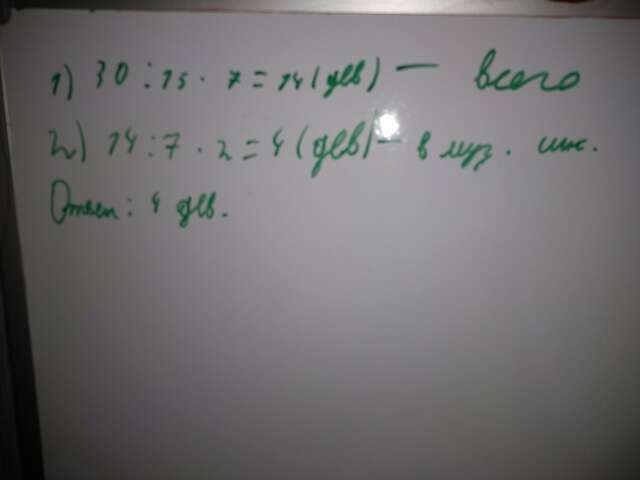 1) 30 : 15 · 7 = 14 (дев) — всего
2) 14 : 7 · 2 = 4 (дев) — в муз. шк.
Ответ: 4 дев.